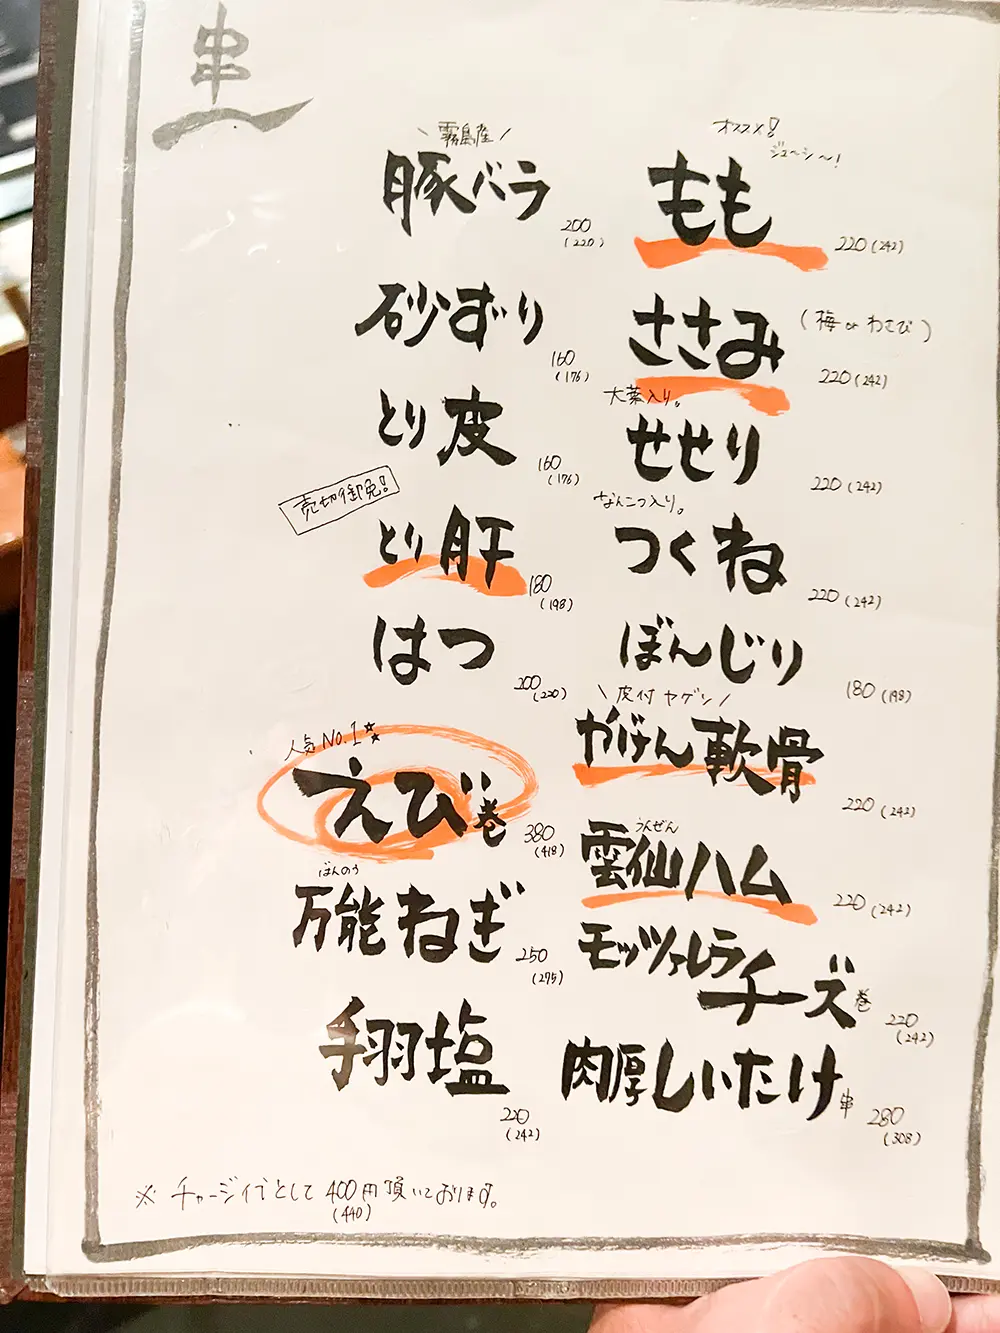 串
オススメ!
ジューシ〜!
もも
220(242)
ささみ
(梅 or わさび)
220(242)
大葉入り。
せせり
220(242)
なんこつ入り。
つくね
220(242)
ぼんじり
180(198)
\ 皮付 ヤゲン /
やげん軟骨
220(242)
うんぜん
雲仙ハム
220(242)
モッツァレラ
チーズ巻
220
(242)
肉厚しいたけ串
280
(308)
\ 霧島産 /
豚バラ
200
(220)
砂ずり
160
(176)
とり皮
160
(176)
売切御免!
とり肝
180
(198)
はつ
200
(220)
人気No.1
えび巻
380
(418)
ばんのう
万能ねぎ
250
(275)
手羽塩
220
(242)
※ チャージ代として400円頂いております。
(440)